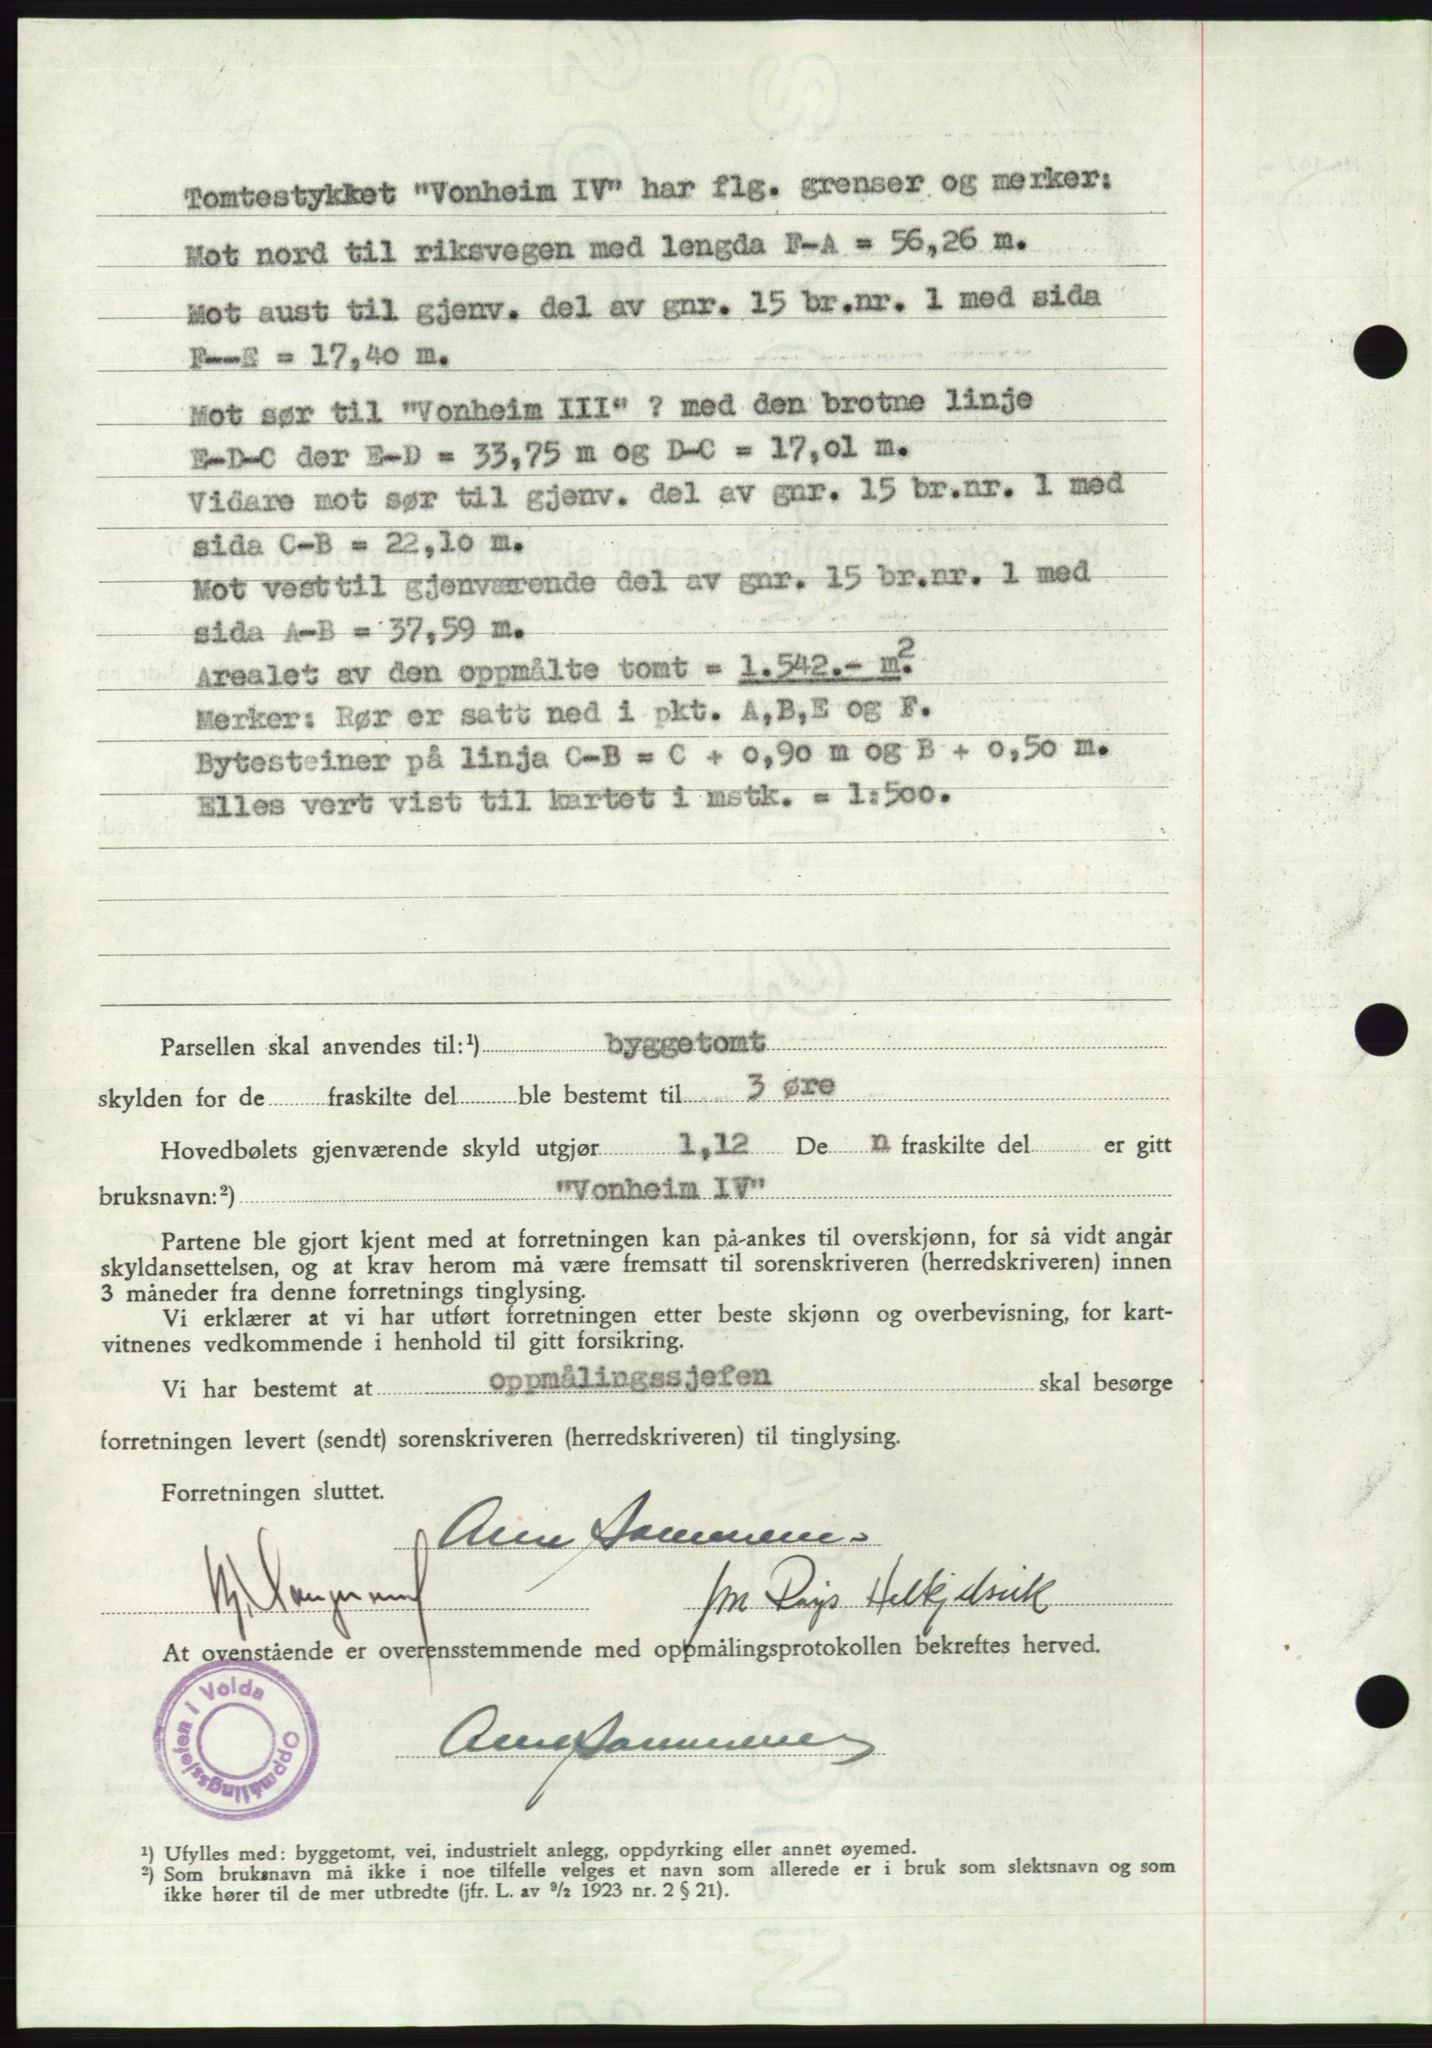 Tomtestykket "Vonheim IV" har flg. grenser og merker:
Mot nord til riksvegen med lengda F-A = 56,26 m.
Mot aust til gjenv. del av gnr. 15 br.nr. 1 med sida
F--E = 17,40 m.
Mot sør til "Vonheim III" ? med den brotne linje
E-D-C der E-D = 33,75 m og D-C = 17,01 m.
Vidare mot sør til gjenv. del av gnr. 15 br.nr. 1 med
sida C-B = 22,10 m.
Mot vest til gjenværende del av gnr. 15 br.nr. 1 med
sida A-B = 37,59 m.
Arealet av den oppmålte tomt = 1.542.- m².
Merker: Rør er satt ned i pkt. A,B,E og F.
Bytesteiner på linja C-B = C + 0,90 m og B + 0,50 m.
Elles vert vist til kartet i mstk. = 1:500.
Parsellen skal anvendes til:¹) byggetomt
skylden for de fraskilte del ble bestemt til 3 øre
Hovedbølets gjenværende skyld utgjør 1,12 De n fraskilte del er gitt
bruksnavn:²) "Vonheim IV"
Partene ble gjort kjent med at forretningen kan på-ankes til overskjønn, for så vidt angår
skyldansettelsen, og at krav herom må være fremsatt til sorenskriveren (herredskriveren) innen
3 måneder fra denne forretnings tinglysing.
Vi erklærer at vi har utført forretningen etter beste skjønn og overbevisning, for kart-
vitnenes vedkommende i henhold til gitt forsikring.
Vi har bestemt at oppmålingssjefen skal besørge
forretningen levert (sendt) sorenskriveren (herredskriveren) til tinglysing.
Forretningen sluttet.
At ovenstående er overensstemmende med oppmålingsprotokollen bekreftes herved.
Oppmålingssjefen i Volda
¹) Ufylles med: byggetomt, vei, industrielt anlegg, oppdyrking eller annet øyemed.
²) Som bruksnavn må ikke i noe tilfelle velges et navn som allerede er i bruk som slektsnavn og som
ikke hører til de mer utbredte (jfr. L. av ⁹/₂ 1923 nr. 2 § 21).